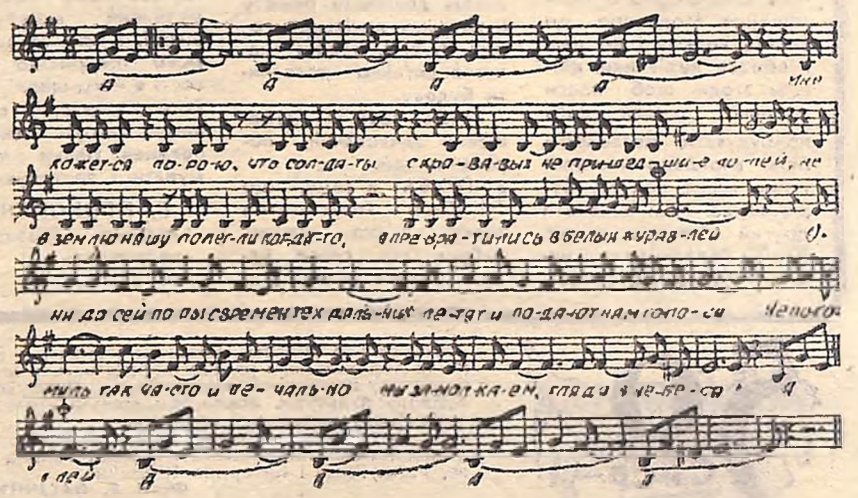 А А А А Мне
ка-жет-ся по-ро-ю, что сол-да-ты с кро-ва-вых не при-шед-ши-е по-лей, не
в землю нашу полег-ли когда-то, а пре-вра-ти-лись в белых журав-лей О-
ни до сей по-ры с времен тех даль-них ле-тят и по-да-ют нам голо-са Непото-
му ль так ча-сто и пе-чаль-но мы за-мол-ка-ем, глядя в не-бе-са А
лей А А А А